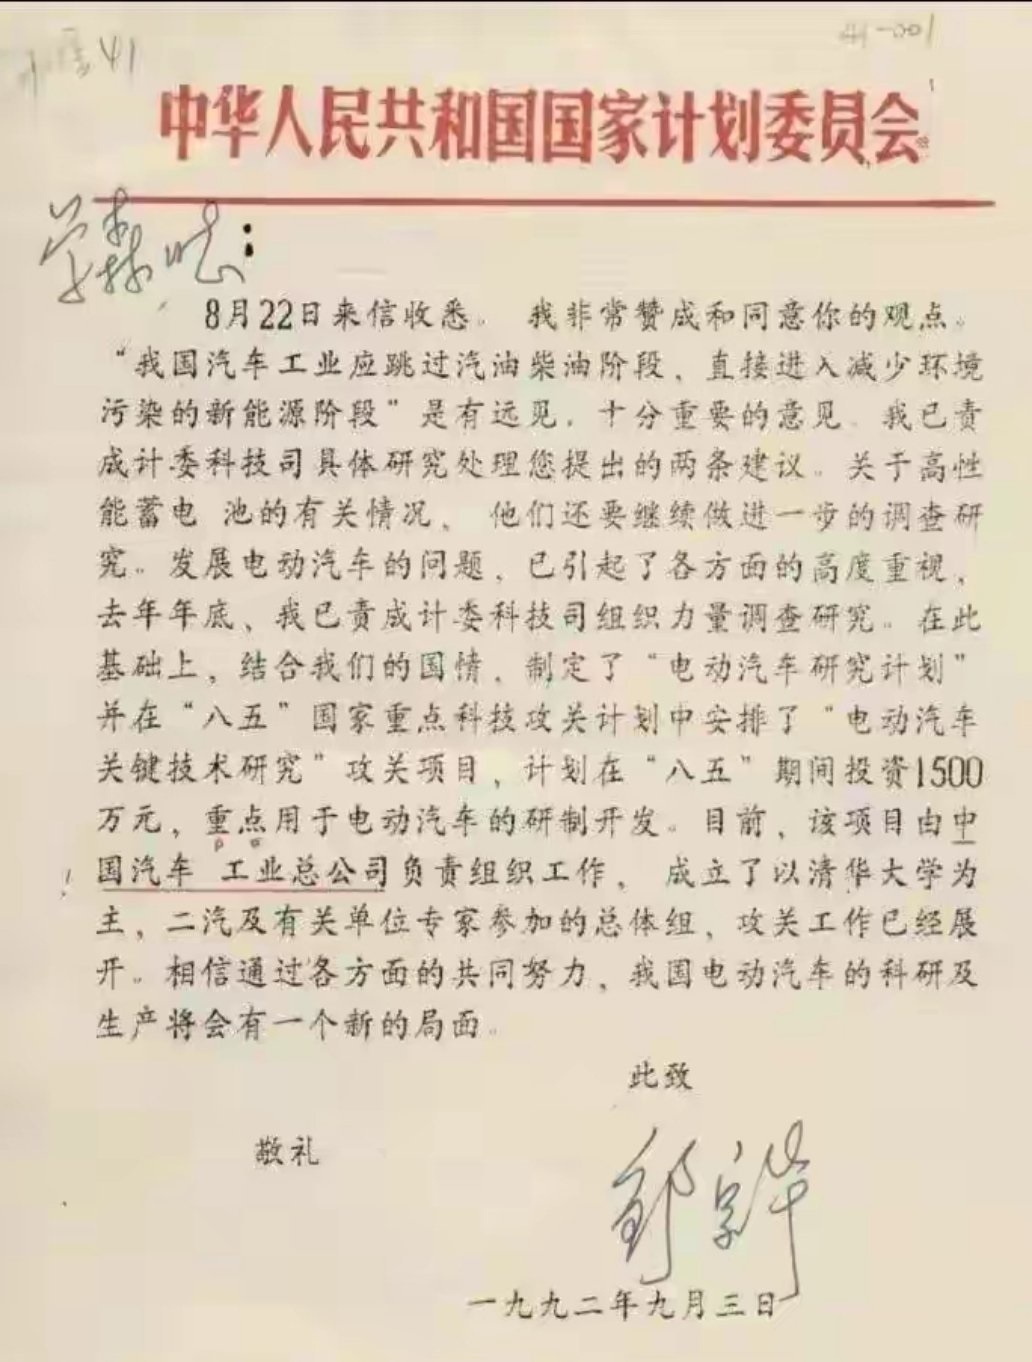 41
41-001
中华人民共和国国家计划委员会
学森同志：
8月22日来信收悉。我非常赞成和同意你的观点。
“我国汽车工业应跳过汽油柴油阶段，直接进入减少环境
污染的新能源阶段”是有远见，十分重要的意见。我已责
成计委科技司具体研究处理您提出的两条建议。关于高性
能蓄电 池的有关情况， 他们还要继续做进一步的调查研
究。发展电动汽车的问题，已引起了各方面的高度重视，
去年年底，我已责成计委科技司组织力量调查研究。在此
基础上，结合我们的国情，制定了“电动汽车研究计划”
并在“八五”国家重点科技攻关计划中安排了“电动汽车
关键技术研究”攻关项目，计划在“八五”期间投资1500
万元，重点用于电动汽车的研制开发。目前，该项目由中
国汽车 工业总公司负责组织工作， 成立了以清华大学为
主，二汽及有关单位专家参加的总体组，攻关工作已经展
开。相信通过各方面的共同努力，我国电动汽车的科研及
生产将会有一个新的局面。
此致
敬礼
邹家华
一九九二年九月三日